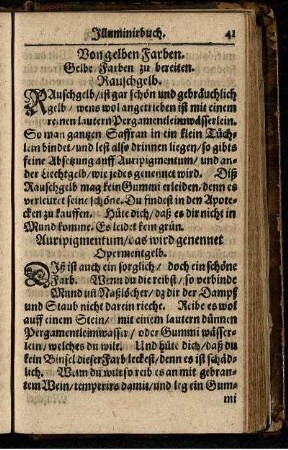 Illuminirbuch. 41
Von gelben Farben.
Gelbe Farben zu bereiten.
Rauschgelb.
RAuschgelb/ist gar schön und gebräuchlich
gelb/ wens wol angetrieben ist mit einem
reinen lautern Pergamentleimwässerlein.
So man gantzen Saffran in ein klein Tüch-
lein bindet/ und lest also drinnen ligen/ so gibts
feine Absetzung auff Auripigmentum/ und an-
der Liechtgelb/ wie jedes genennet wird. Diß
Rauschgelb mag kein Gummi erleiden/ denn es
verleuret seine schöne. Du findest in den Apote-
cken zu kauffen. Hüte dich/ daß es dir nicht in
Mund komme. Es leidet kein grün.
Auripigmentum/ das wird genennet
Opermentgelb.
DIß ist auch ein sorglich/ doch ein schöne
Farb. Wenn du die reibst/ so verbinde
Mund uñ Naßlöcher/ dz dir der Dampff
und Staub nicht darein rieche. Reibe es wol
auff einem Stein/ mit einem lautern dünnen
Pergamentleimwasser/ oder Gummi wässer-
lein/ welches du wilt. Und hüte dich/ daß du
kein Binsel dieser Farb leckest/ denn es ist schäd-
lich. Wenn du wilt so reib es an mit gebran-
tem Wein/ temperirs damit/ und leg ein Gum-
mi